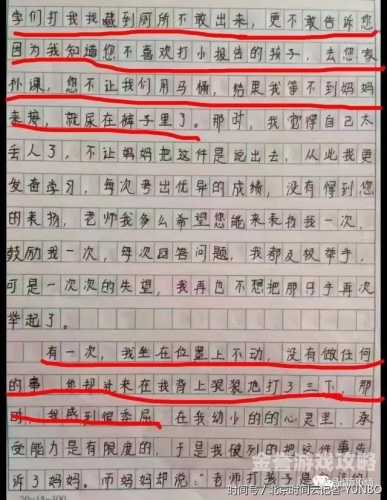 学们打我我藏到厕所不敢出来，更不敢告诉您
因为我知道您不喜欢打小报告的孩子，去您家
补课，您不让我们用马桶，结果我等不到妈妈
来接，就尿在裤子里了。那时，我觉得自己太
丢人了，不让妈妈把这件是说出去，从此我更
发奋学习，每次考出优异的成绩，没有得到您
的表扬，老师我多么希望您能来表扬我一次，
鼓励我一次，每次回答问题，我都及极举手，
可是一次次的失望，我再也不想把那只手再次
举起了。
有一次，我坐在位置上不动，没有做任何
的事 您却过来在我背上狠狠地打了三下 那
时，我感到很委屈 在我幼小的的心灵里，承
受能力是有限度的，于是我
诉了妈妈。而妈妈却说："老师打孩子是
20×15=300
金管游戏攻略
时间号 / 北京时间云记者-YUNBO